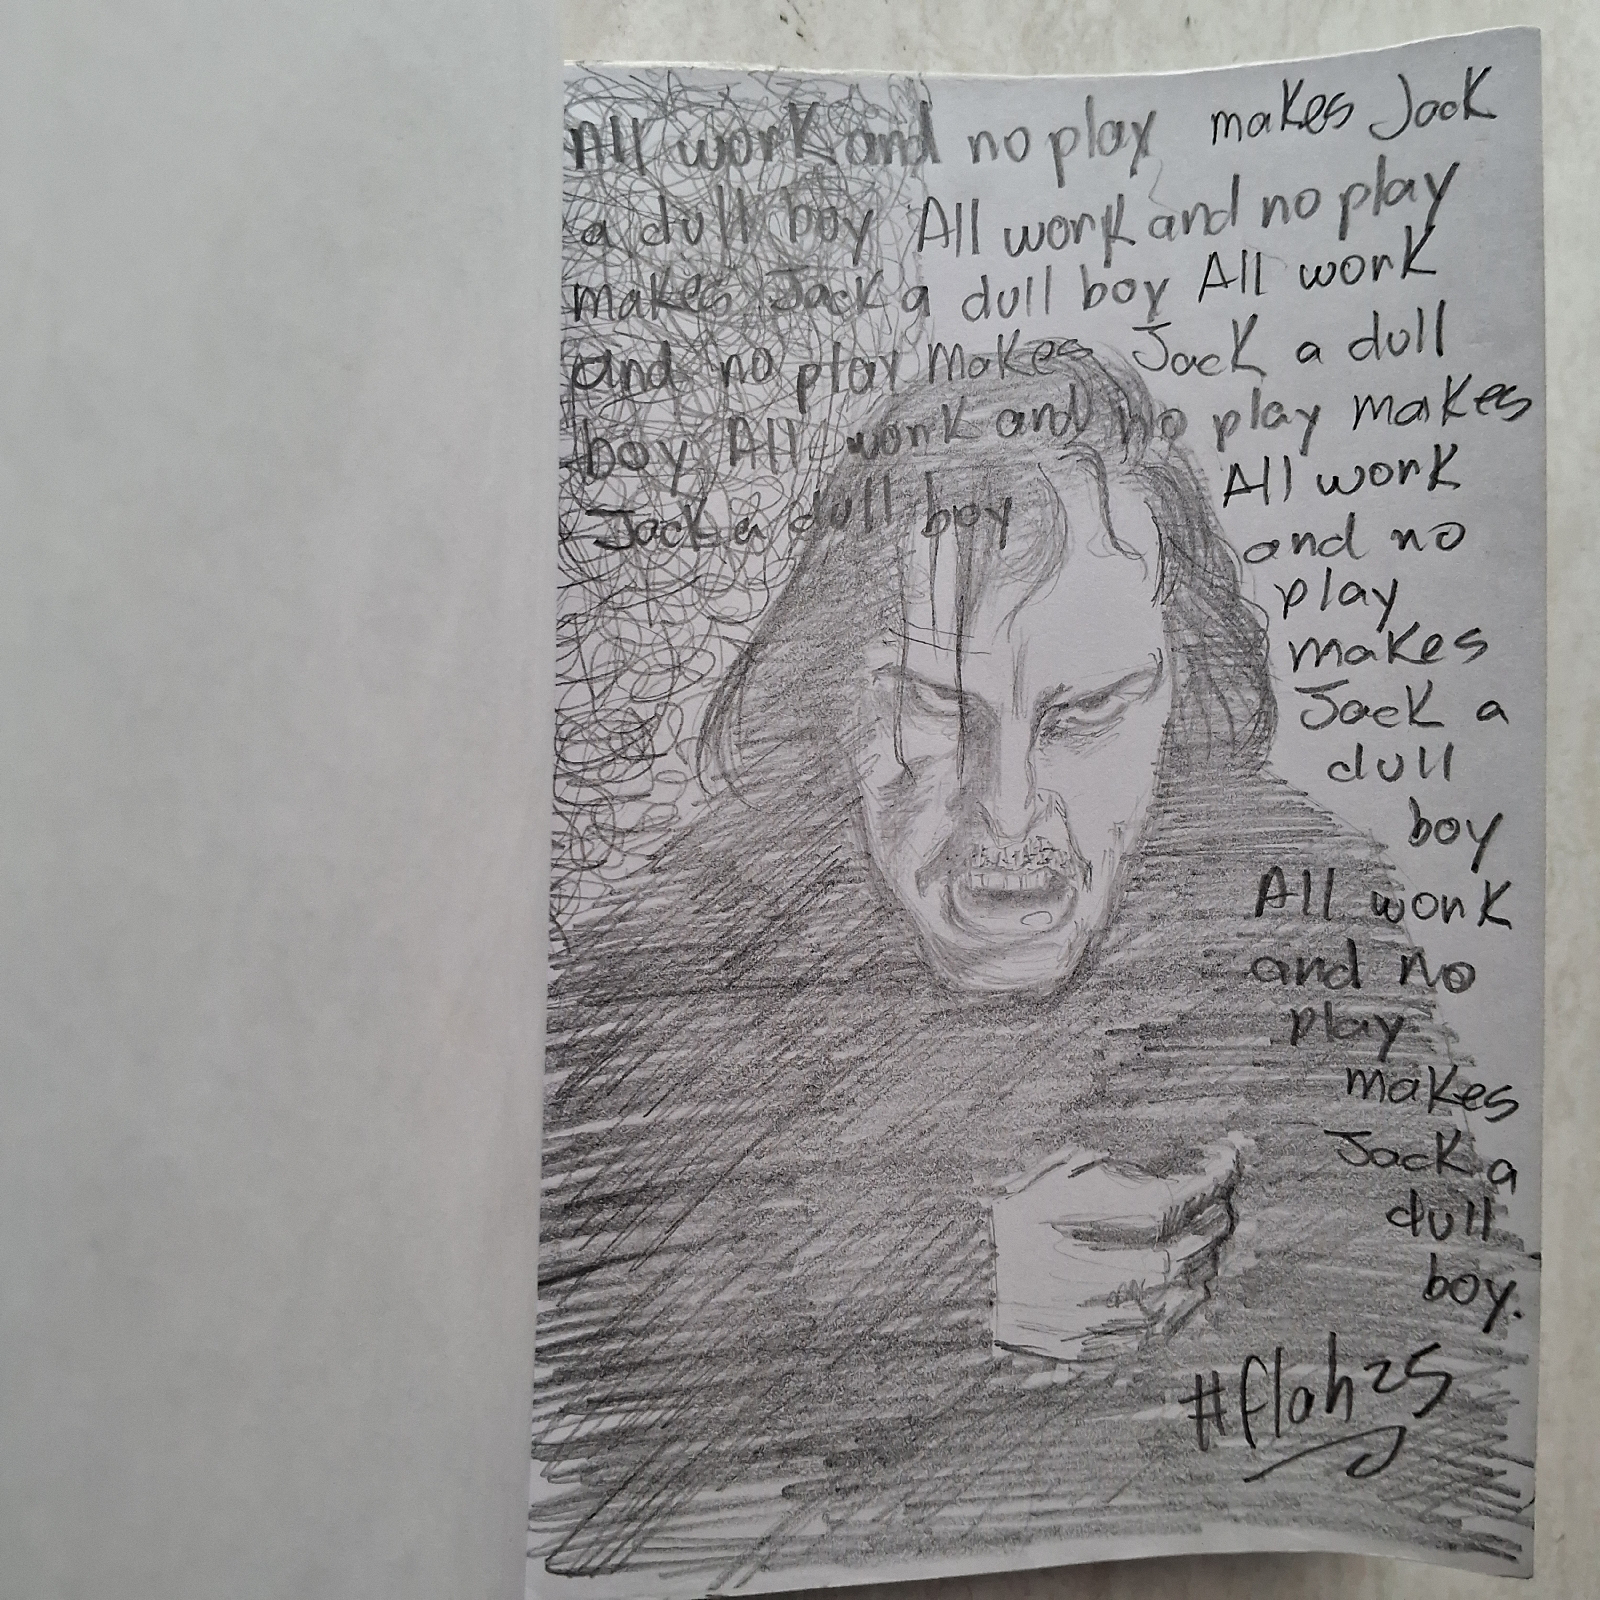 All work and no play makes Jack
a dull boy All work and no play
makes Jack a dull boy All work
and no play makes Jack a dull
boy All work and no play makes
Jack a dull boy
All work
and no
play
makes
Jack a
dull
boy
All work
and no
play
makes
Jack a
dull
boy.
#flah25